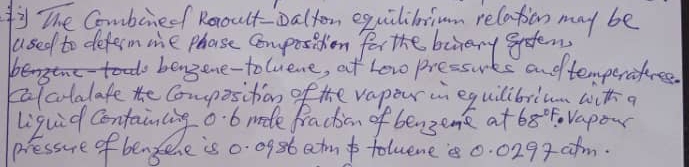 ii) The Combined Raoult-Dalton equilibrium relation may be
used to determine phase composition for the binary system,
benzene-toulu benzene-toluene, at low pressures and temperatures.
Calculalate the Composition of the vapour in equilibrium with a
liquid Containing 0.6 mole fraction of benzene at 68°F. Vapour
pressure of benzene is 0.0986 atm & toluene is 0.0297 atm.